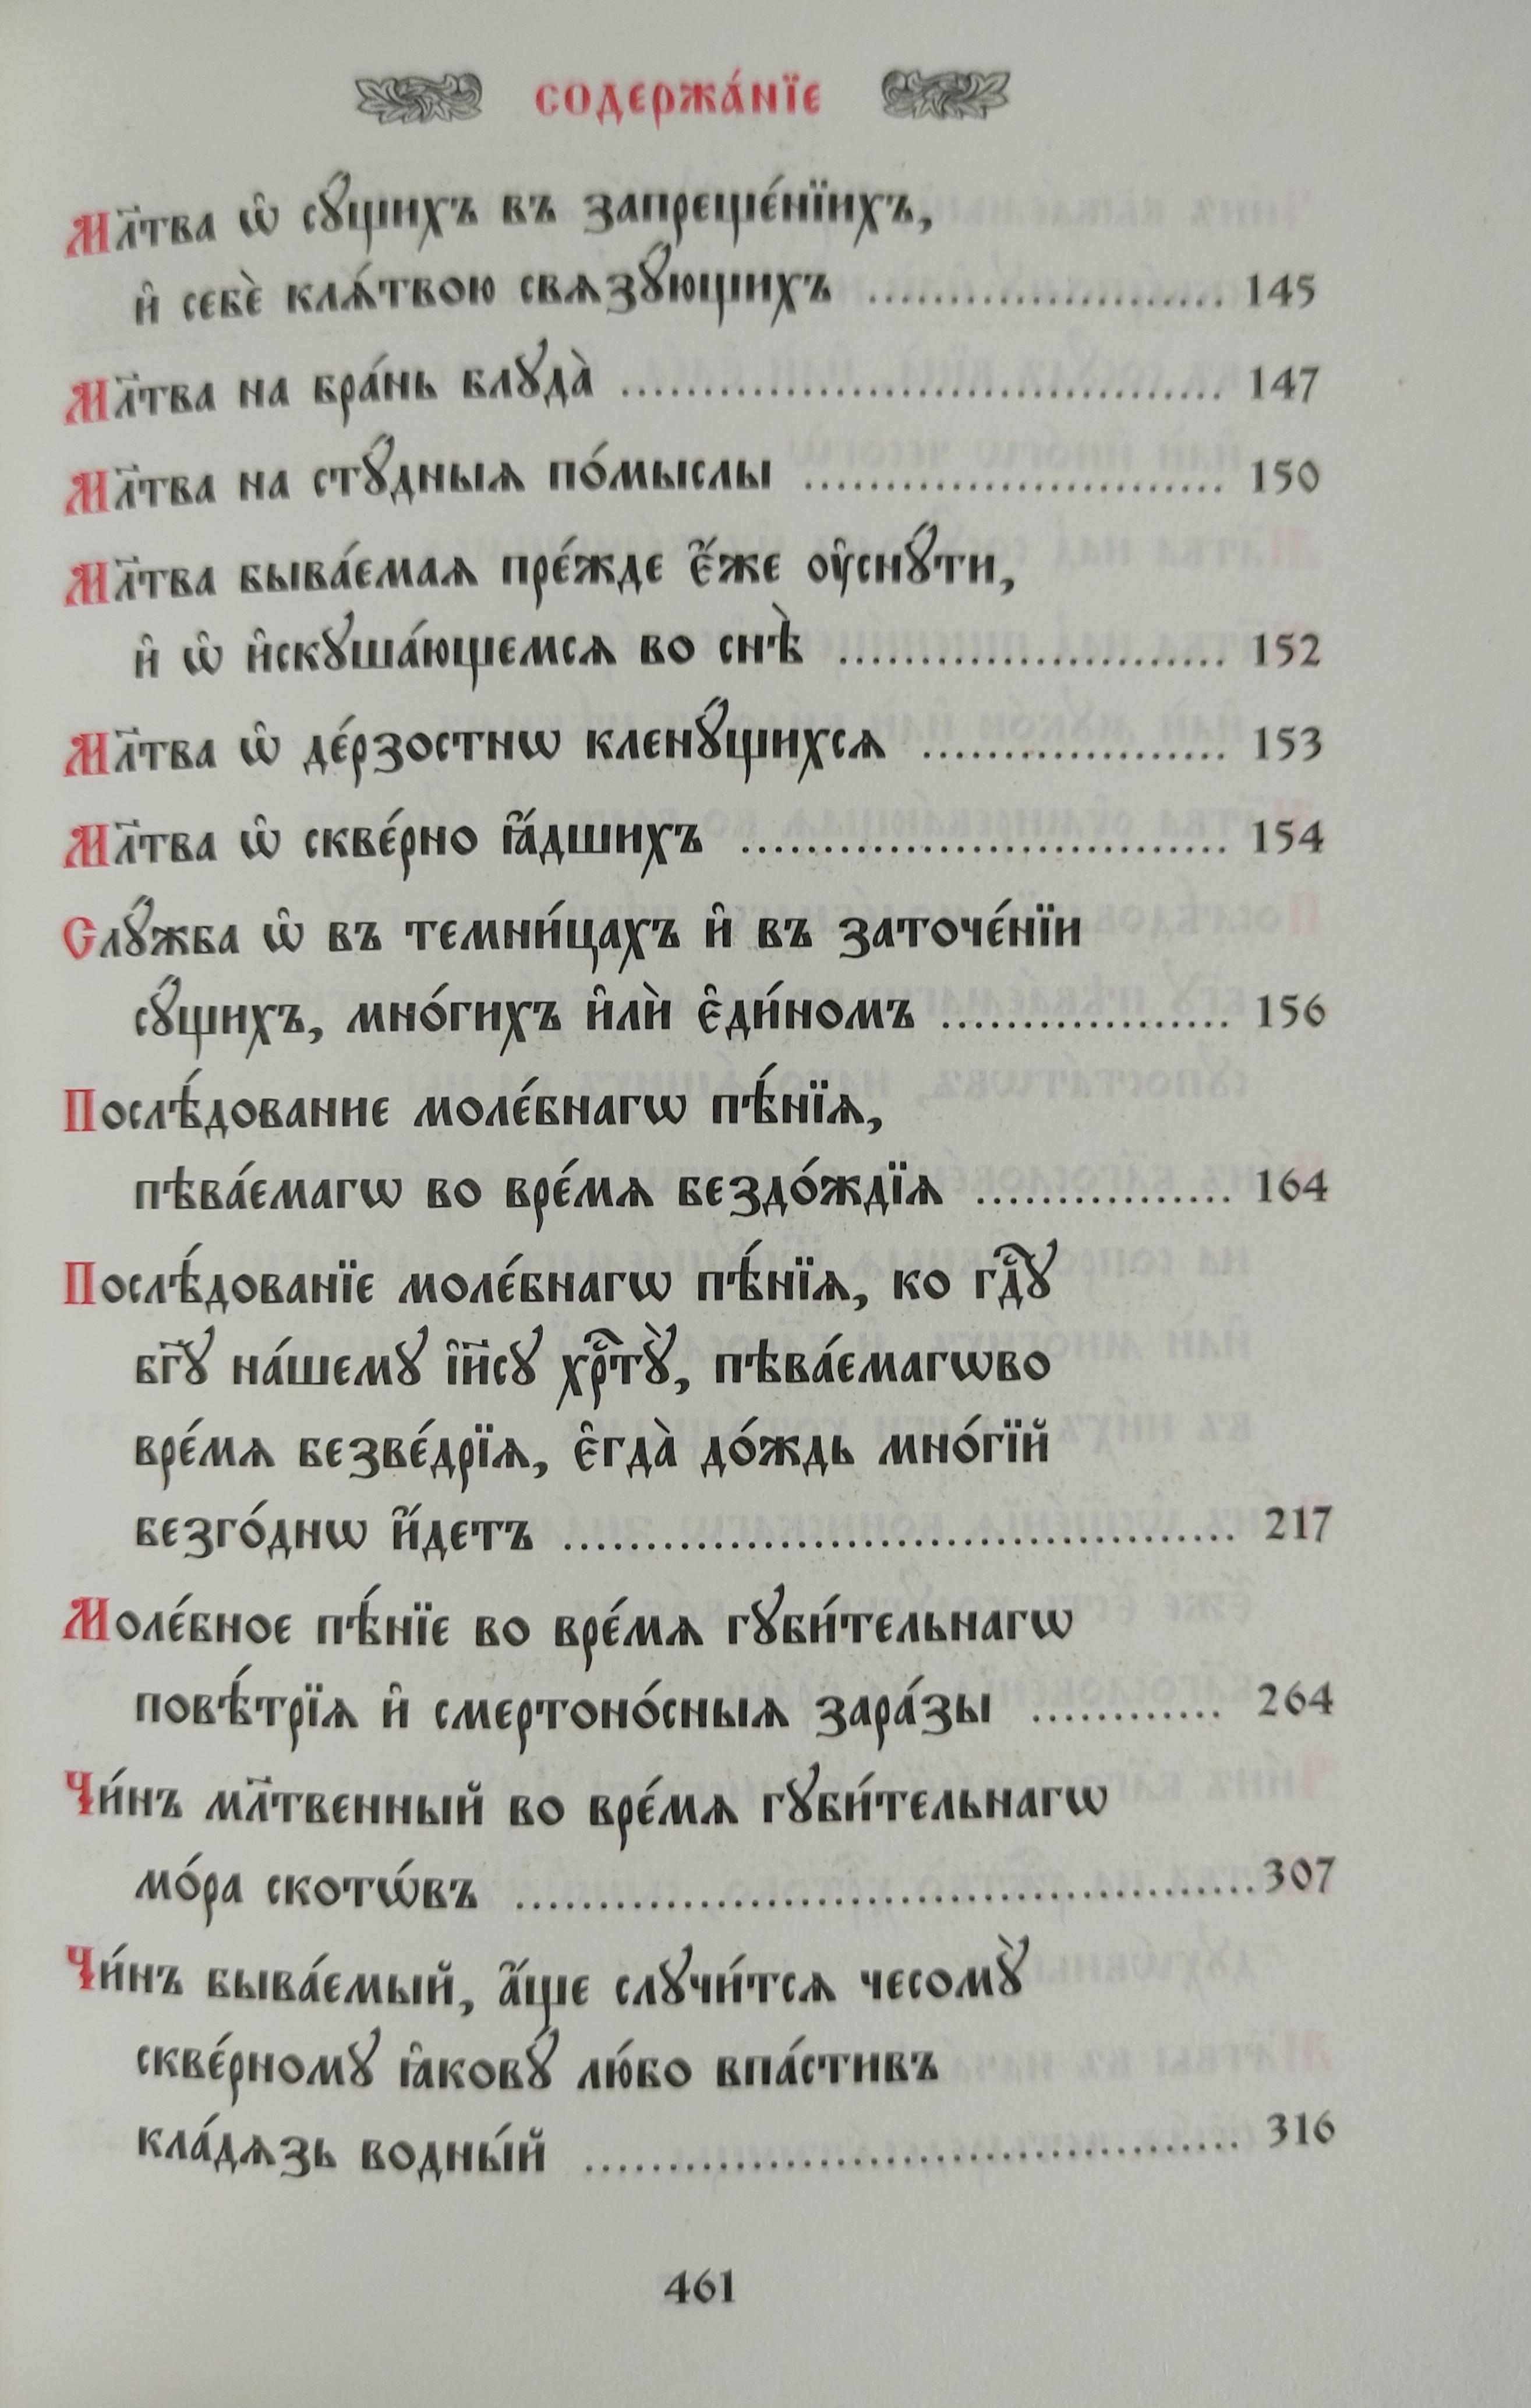 содержа́нїе
Мл҃тва ѡ҆ сꙋ́щихъ въ запреще́нїихъ,
и҆ себѐ кла́твою свѧзꙋ́ющихъ ...................... 145
Мл҃тва на бра́нь блꙋда̀ ..................................... 147
Мл҃тва на стꙋ́дныѧ по́мыслы .......................... 150
Мл҃тва быва́емаѧ пре́жде є҆́же ᲂу҆снꙋ́ти,
и҆ ѡ҆ и҆скꙋша́ющемсѧ во снѣ̀ ........................ 152
Мл҃тва ѡ҆ де́рзостнѡ кленꙋ́щихсѧ ................... 153
Мл҃тва ѡ҆ скве́рно ꙗ҆́дшихъ .............................. 154
Слꙋ́жба ѡ҆ въ темни́цахъ и҆ въ заточе́нїи
сꙋ́щихъ, мно́гихъ и҆лѝ є҆ди́номъ .................. 156
Послѣ́дование моле́бнагѡ пѣ́нїѧ,
пѣва́емагѡ во вре́мѧ бездо́ждїѧ ................ 164
Послѣ́дованїе моле́бнагѡ пѣ́нїѧ, ко гдⷭ҇ꙋ
бг҃ꙋ на́шемꙋ і҆и҃сꙋ хрⷭ҇тꙋ̀, пѣва́емагѡво
вре́мѧ безве́дрїѧ, є҆гда̀ до́ждь мно́гїй
безго́днѡ и҆́детъ ......................................... 217
Моле́бное пѣ́нїе во вре́мѧ гꙋби́тельнагѡ
повѣ́трїѧ и҆ смертоно́сныѧ зара́зы ............ 264
Чи́нъ мл҃твенный во вре́мѧ гꙋби́тельнагѡ
мо́ра скотѡ́въ ..............................................307
Чи́нъ быва́емый, а҆́ще слꙋчи́тсѧ чесомꙋ̀
скве́рномꙋ ꙗ҆ковꙋ́ лю́бо впа́стивъ
кла́дѧзь водны́й ........................................ 316
461